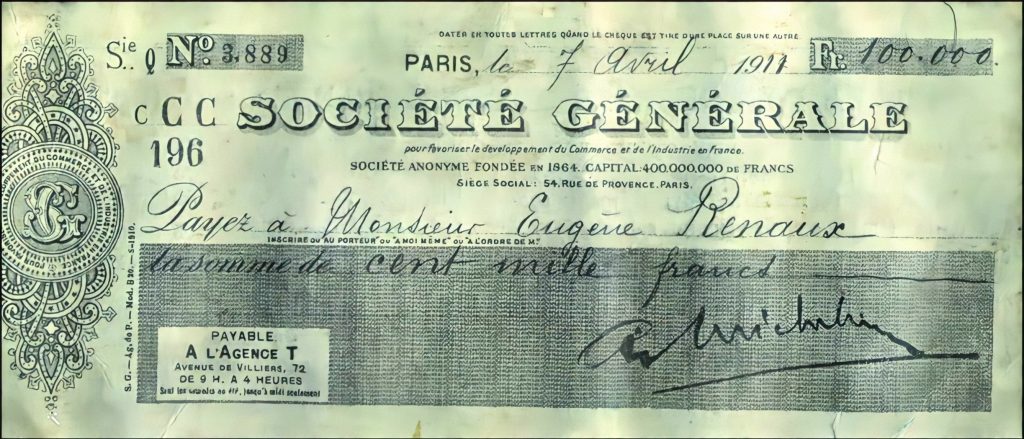 DATER EN TOUTES LETTRES QUAND LE CHÈQUE EST TIRÉ D'UNE PLACE SUR UNE AUTRE
Sie Q No. 3.889
PARIS, le 7 Avril 1911 Fr. 100.000.
C C C SOCIÉTÉ GÉNÉRALE
196
pour favoriser le développement du Commerce et de l'Industrie en France.
SOCIÉTÉ ANONYME FONDÉE EN 1864. CAPITAL: 400.000.000 DE FRANCS
SIÈGE SOCIAL: 54, RUE DE PROVENCE, PARIS.
Payez à Monsieur Eugène Renaux
INSCRIRE OU "AU PORTEUR" OU "A MOI MÊME" OU "A L'ORDRE DE M."
la somme de cent mille francs
Michelin
PAYABLE
A L'AGENCE T
AVENUE DE VILLIERS, 72
DE 9 H. A 4 HEURES
jusqu'à midi seulement
S. G. — Ag. de P. — Mod. B10 — S-1910.
SG
DU COMMERCE ET DE L'INDUSTRIE